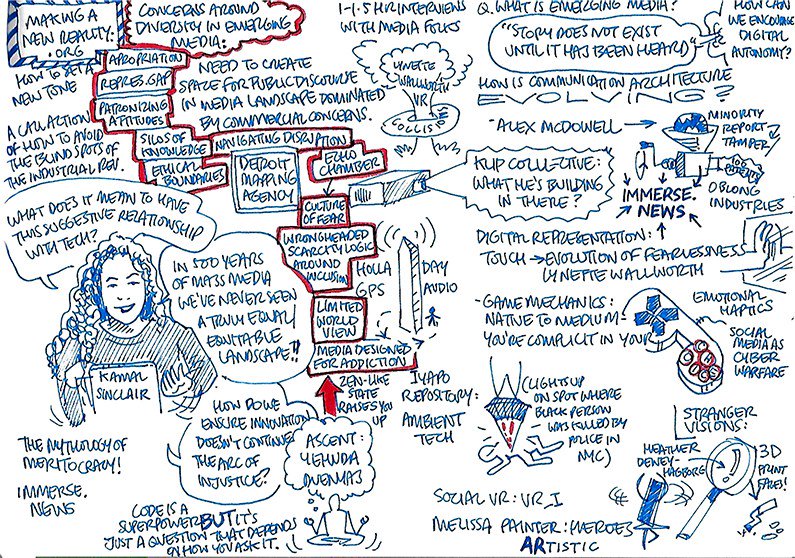 MAKING A
NEW REALITY.
ORG
HOW TO SET A
NEW TONE
CONCERNS AROUND
DIVERSITY IN EMERGING
MEDIA:
APROPRIATION
REPRES. GAP
PATRONIZING
ATTITUDES
SILOS OF
KNOWLEDGE
ETHICAL
BOUNDARIES
NAVIGATING DISRUPTION
ECHO
CHAMBER
CULTURE
OF FEAR
WRONGHEADED
SCARCITY LOGIC
AROUND
INCLUSION
LIMITED
WORLD
VIEW
MEDIA DESIGNED
FOR ADDICTION
NEED TO CREATE
SPACE FOR PUBLIC DISCOURSE
IN MEDIA LANDSCAPE DOMINATED
BY COMMERCIAL CONCERNS.
A CALL ACTION
OF HOW TO AVOID
THE BLIND SPOTS OF
THE INDUSTRIAL REV.
DETROIT
MAPPING
AGENCY
WHAT DOES IT MEAN TO HAVE
THIS SUGGESTIVE RELATIONSHIP
WITH TECH?
IN 500 YEARS
OF MASS MEDIA
WE'VE NEVER SEEN
A TRULY EQUAL/
EQUITABLE
LANDSCAPE!!
KAMAL
SINCLAIR
THE MYTHOLOGY OF
MERITOCRACY!
IMMERSE.
NEWS
HOW DO WE
ENSURE INNOVATION
DOESN'T CONTINUE
THE ARC OF
INJUSTICE?
CODE IS A
SUPERPOWER BUT IT'S
JUST A QUESTION THAT DEPENDS
ON HOW YOU ASK IT.
ZEN-LIKE
STATE
RAISES YOU
UP
ASCENT:
YEHUDA
DUENYAS
1-1.5 HR INTERVIEWS
WITH MEDIA FOLKS
LYNETTE
WALLWORTH
VR
COLLIS
HOLLA
GPS
DAY
AUDIO
IYAPO
REPOSITORY:
AMBIENT
TECH
(LIGHTS UP
ON SPOT WHERE
BLACK PERSON
WAS KILLED BY
POLICE IN
NYC)
SOCIAL VR: VR_I
MELISSA PAINTER: HEROES
ARTISTIC
Q. WHAT IS EMERGING MEDIA?
"STORY DOES NOT EXIST
UNTIL IT HAS BEEN HEARD"
HOW CAN
WE ENCOURAGE
DIGITAL
AUTONOMY?
HOW IS COMMUNICATION ARCHITECTURE
EVOLVING?
-ALEX MCDOWELL
MINORITY
REPORT
TAMPER
OBLONG
INDUSTRIES
KLIP COLLECTIVE:
WHAT HE'S BUILDING
IN THERE?
IMMERSE.
NEWS
DIGITAL REPRESENTATION:
TOUCH → EVOLUTION OF FEARLESSNESS
LYNETTE WALLWORTH
-GAME MECHANICS:
NATIVE TO MEDIUM-
YOU'RE COMPLICIT IN YOUR
EMOTIONAL
HAPTICS
SOCIAL
MEDIA AS
CYBER
WARFARE
STRANGER
VISIONS:
HEATHER
DEWEY-
HAGBORG
3D
PRINT
FACES!